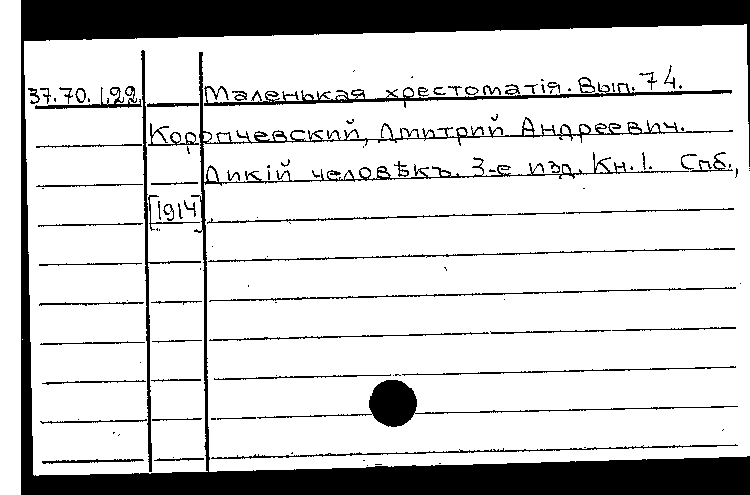 37.70.1.22. Маленькая хрестоматія. Вып. 74.
Коропчевский, Дмитрий Андреевич.
Дикій человѣкъ. 3-е изд. Кн. 1. Спб.,
[1914].